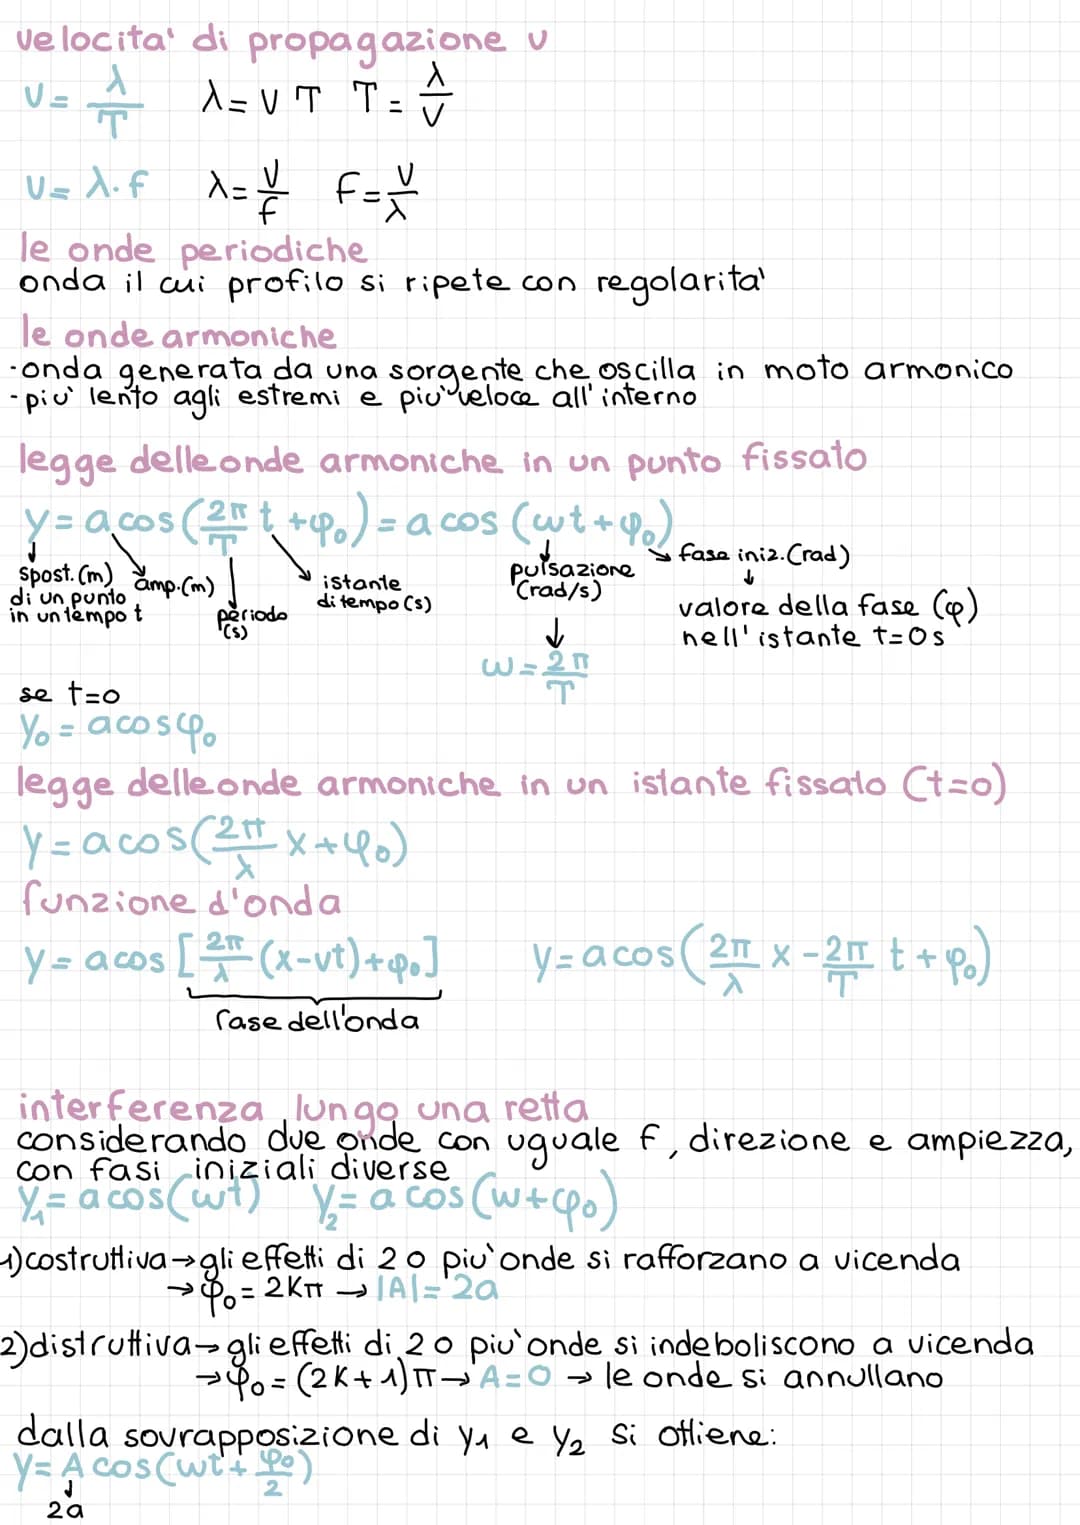 velocita' di propagazione v
v = λ/T   λ = v T   T = λ/v
v = λ·f   λ = v/f   F = v/λ
le onde periodiche
onda il cui profilo si ripete con regolarita'
le onde armoniche
·onda generata da una sorgente che oscilla in moto armonico
-piu' lento agli estremi e piu' veloce all'interno
legge delle onde armoniche in un punto fissato
y = a cos(2π/T t + φ₀) = a cos (ωt + φ₀)
spost. (m) di un punto in un tempo t
amp. (m)
periodo (s)
istante di tempo (s)
pulsazione (rad/s)
↓
ω = 2π/T
fase iniz. (rad)
↓
valore della fase (φ)
nell'istante t=0s
se t=0
y₀ = a cos φ₀
legge delle onde armoniche in un istante fissato (t=0)
y = a cos(2π/λ x + φ₀)
funzione d'onda
y = a cos [2π/λ (x-vt) + φ₀]   y = a cos(2π/λ x - 2π/T t + φ₀)
fase dell'onda
interferenza lungo una retta
considerando due onde con uguale f, direzione e ampiezza,
con fasi iniziali diverse
y₁ = a cos(ωt)   y₂ = a cos(ω + φ₀)
1) costruttiva → gli effetti di 2 o piu' onde si rafforzano a vicenda
→ φ₀ = 2Kπ → |A| = 2a
2) distruttiva → gli effetti di 2 o piu' onde si indeboliscono a vicenda
→ φ₀ = (2K+1)π → A=0 → le onde si annullano
dalla sovrapposizione di y₁ e y₂ si ottiene:
y = A cos(ωt + φ₀/2)
↓
2a